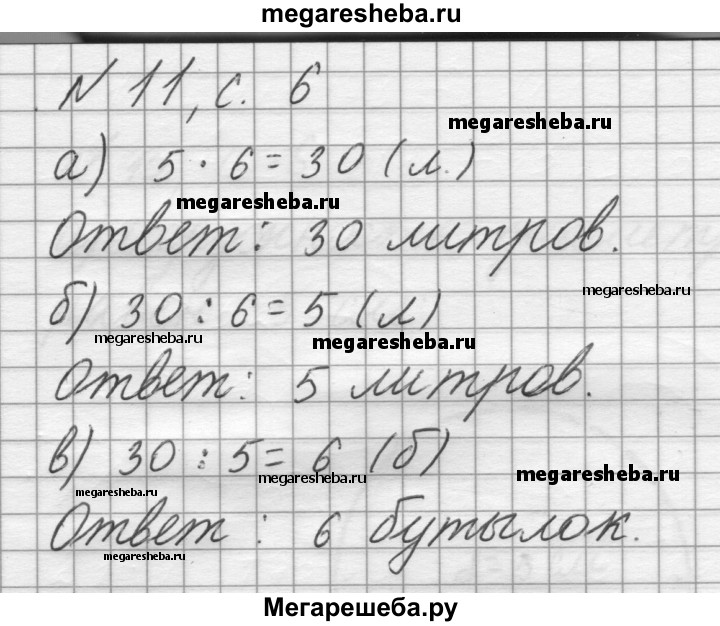 megaresheba.ru
N 11, с. 6
megaresheba.ru
а) 5 · 6 = 30 (л.)
megaresheba.ru
Ответ: 30 литров.
megaresheba.ru
б) 30 : 6 = 5 (л)
megaresheba.ru megaresheba.ru
Ответ: 5 литров.
в) 30 : 5 = 6 (б)
megaresheba.ru megaresheba.ru
megaresheba.ru
Ответ: 6 бутылок.
megaresheba.ru
Мегарешеба.ру